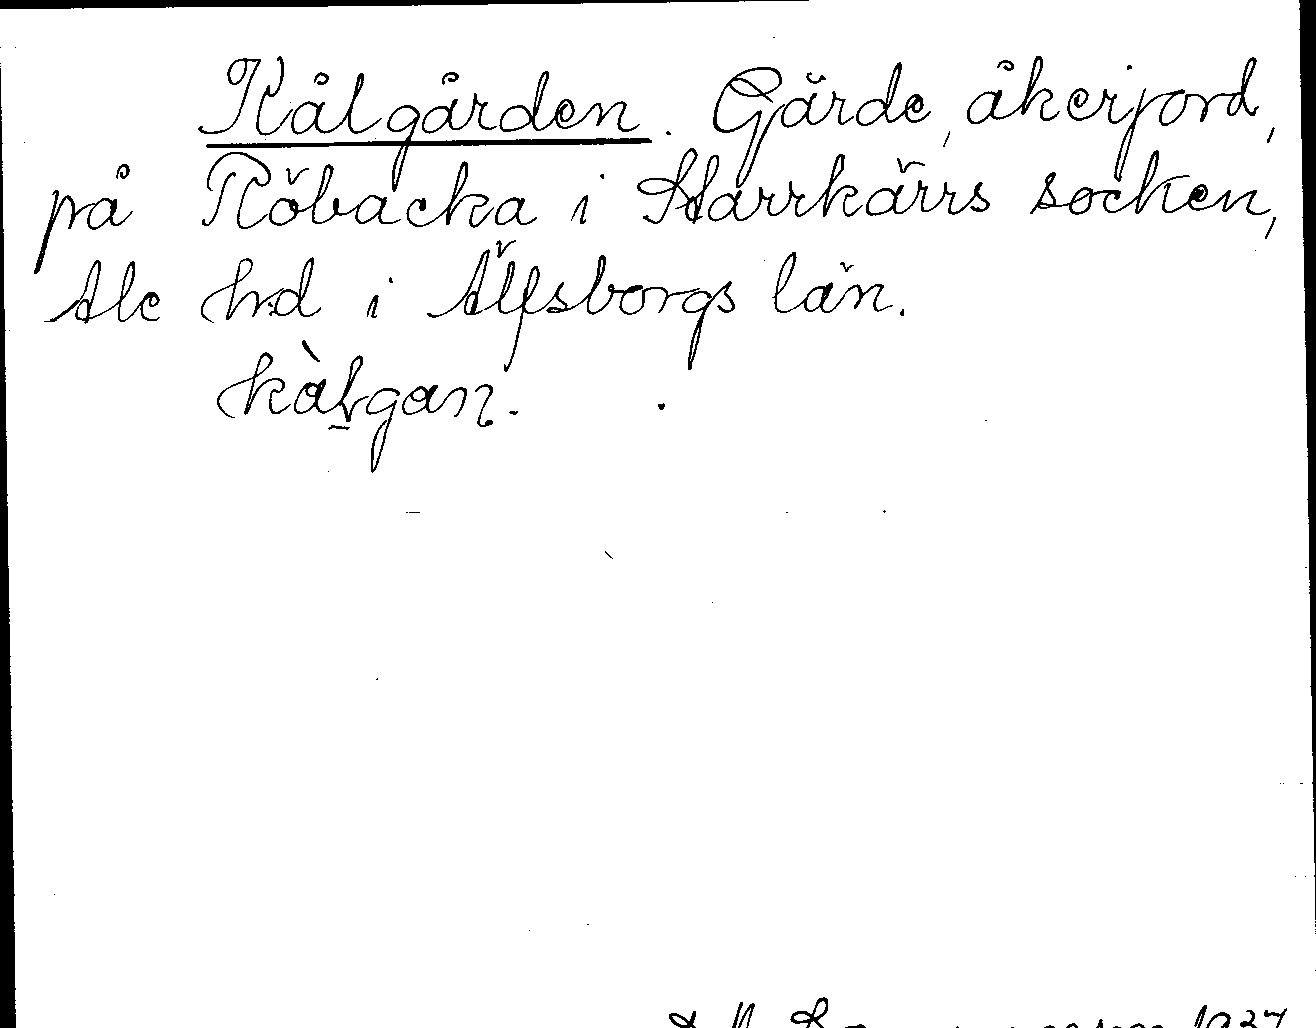 Kålgården. Gärde, åkerjord,
på Röbacka i Starrkärrs socken,
Ale hd i Älfsborgs län.
kàḻgan.
1937